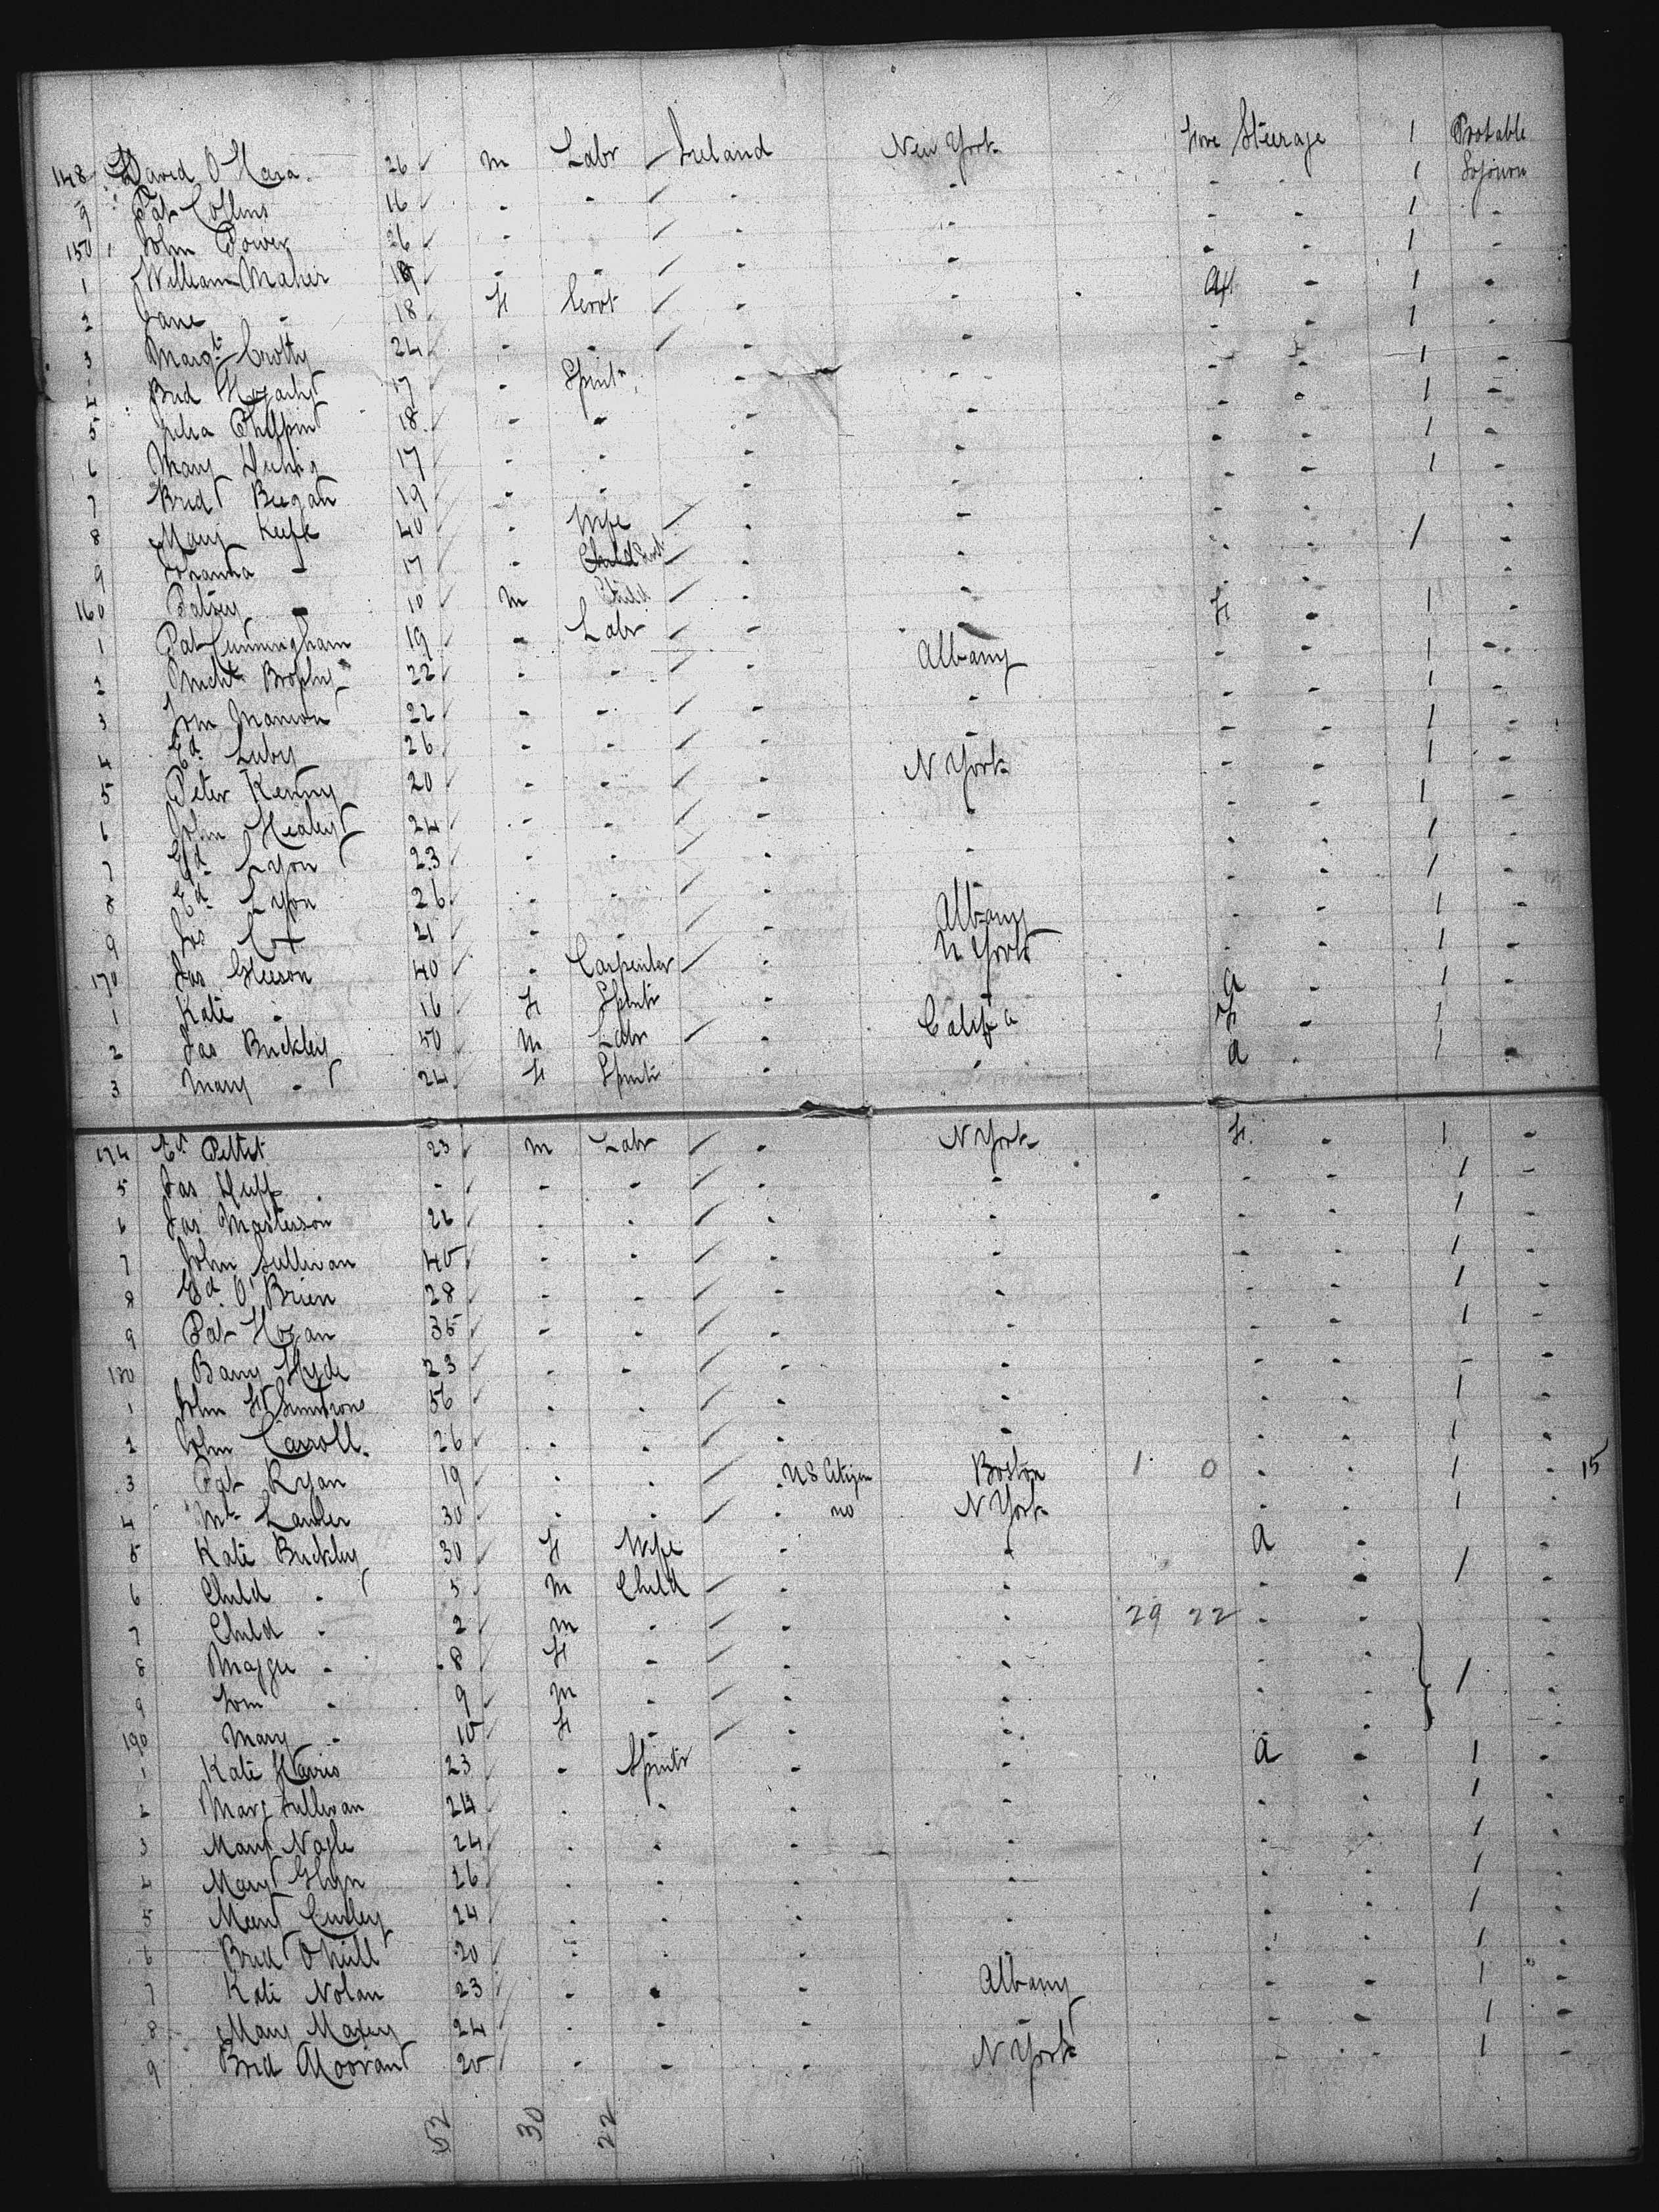 148 David O'Hara 26 m Labr Ireland New York Fore Steerage 1 Protable
9 Pat Collins 16 - - - - - - 1 Sojourn
150 John Power 26 - - - - - - 1 -
1 William Maher 19 - - - - - - 1 -
2 Jane - 18 F Servt - - Aft - 1 -
3 Margt Crotty 24 - - - - - - 1 -
4 Brid 17 - Spinstr - - - - 1 -
5 Julia 18 - - - - - - 1 -
6 Mary 17 - - - - - - 1 -
7 Bridt Beegan 19 - - - - - - 1 -
8 Mary Keefe 40 - Wife - - - -
9 Johanna - 17 - Child - - - - 1 -
160 Patsey - 10 m Child - - - - -
1 Pat Cunningham 19 - Labr - - F - 1 -
2 Michl Brophy 22 - - - Albany - - 1 -
3 Tom Manion 22 - - - - - - 1 -
4 Ed. Luby 26 - - - - - - 1 -
5 Peter Kenny 20 - - - N York - - 1 -
6 John Healey 24 - - - - - - 1 -
7 Ed. Lyon 23 - - - - - - 1 -
8 Ed. Lyon 26 - - - - - - 1 -
9 Jas Cox 21 - - - Albany - - 1 -
170 Jas Gleeson 40 - Carpenter - N York - - 1 -
1 Kate - 16 F Spinstr - - a - 1 -
2 Jas Buckley 50 m Labr - Califa F - 1 -
3 Mary - 24 F Spinstr - - a - 1 -
174 Ed. Pettit 23 m Labr - N York F. - 1 -
5 Jas Huff - - - - - - - 1 -
6 Jas Masterson 26 - - - - - - 1 -
7 John Sullivan 45 - - - - - - 1 -
8 Ed. O'Brien 28 - - - - - - 1 -
9 Pat Hogan 35 - - - - - - 1 -
180 Barry Hyde 23 - - - - - - - -
1 John 56 - - - - - - 1 -
2 John Carroll 26 - - - - - - 1 -
3 Pat Ryan 19 - - - US Citizen Boston 1 0 - - 1 - 15
4 Lawler 30 - - - no N York - - 1 -
5 Kate Buckley 30 F Wife - - a - -
6 Child - 5 m Child - - - - 1 -
7 Child - 2 m - - - 29 22 - -
8 Maggie - 8 F - - - - - -
9 Wm - 9 m - - - - - 1 -
190 Mary - 10 F - - - - - -
1 Kate Harris 23 - Spinstr - - a - 1 -
2 Marg Sullivan 24 - - - - - - 1 -
3 Mary Nagle 24 - - - - - - 1 -
4 Mary Glyn 26 - - - - - - 1 -
5 Mary Curley 24 - - - - - - 1 -
6 Brid O'Neill 20 - - - - - - 1 -
7 Kate Nolan 23 - - - Albany - - 1 -
8 Mary 24 - - - - - - 1 -
9 Brid 20 - - - N York - - 1 -
52 30 22